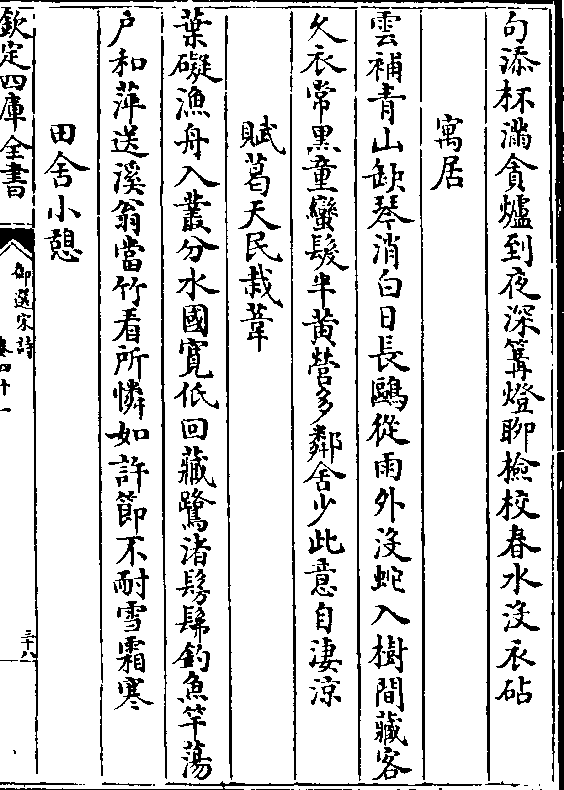 句添杯滿貪爐到夜深篝燈聊檢校春水沒衣砧
寓居
雲補青山缺琴消白日長鷗從雨外沒蛇入樹間藏客
久衣常黑童蠻髮半黄營多鄰舍少此意自淒涼
賦葛天民栽葦
葉礙漁舟入叢分水國寛低回藏鷺渚髣髴釣魚竿蕩
户和萍送溪翁當竹看所憐如許節不耐雪霜寒
田舍小憩
欽定四庫全書
御選宋詩
卷四十一
三十八